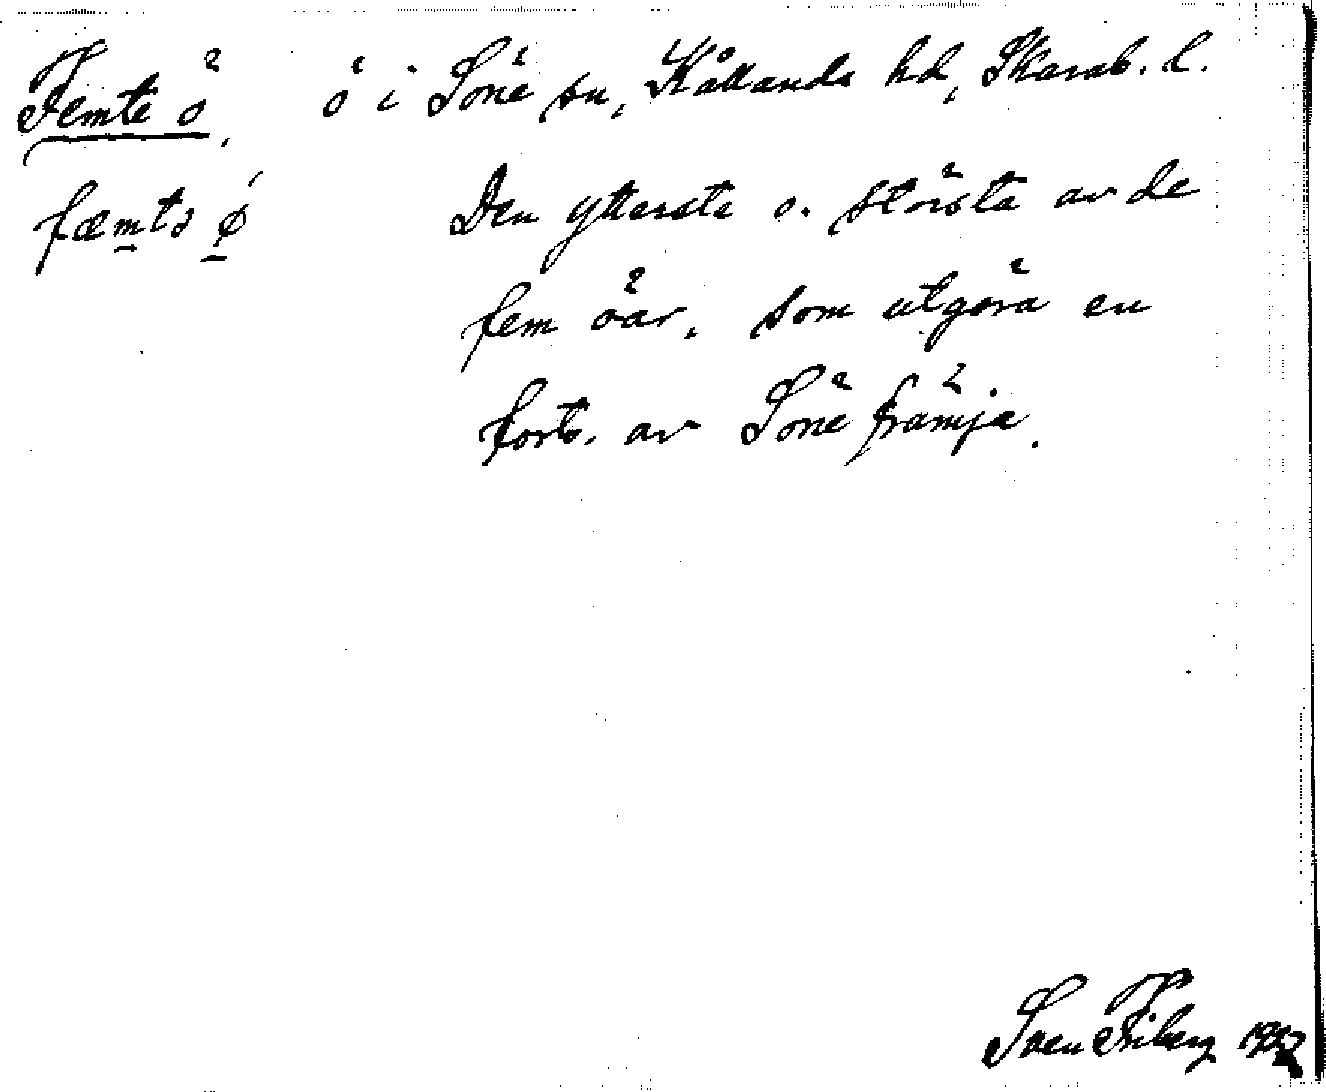 Femte ö, ö i Söne sn, Kållands hd, Skarab. l.
fæmtə ǿ Den yttersta o. största av de
fem öar, som utgöra en
forts. av Söne främja.
Sven Friberg